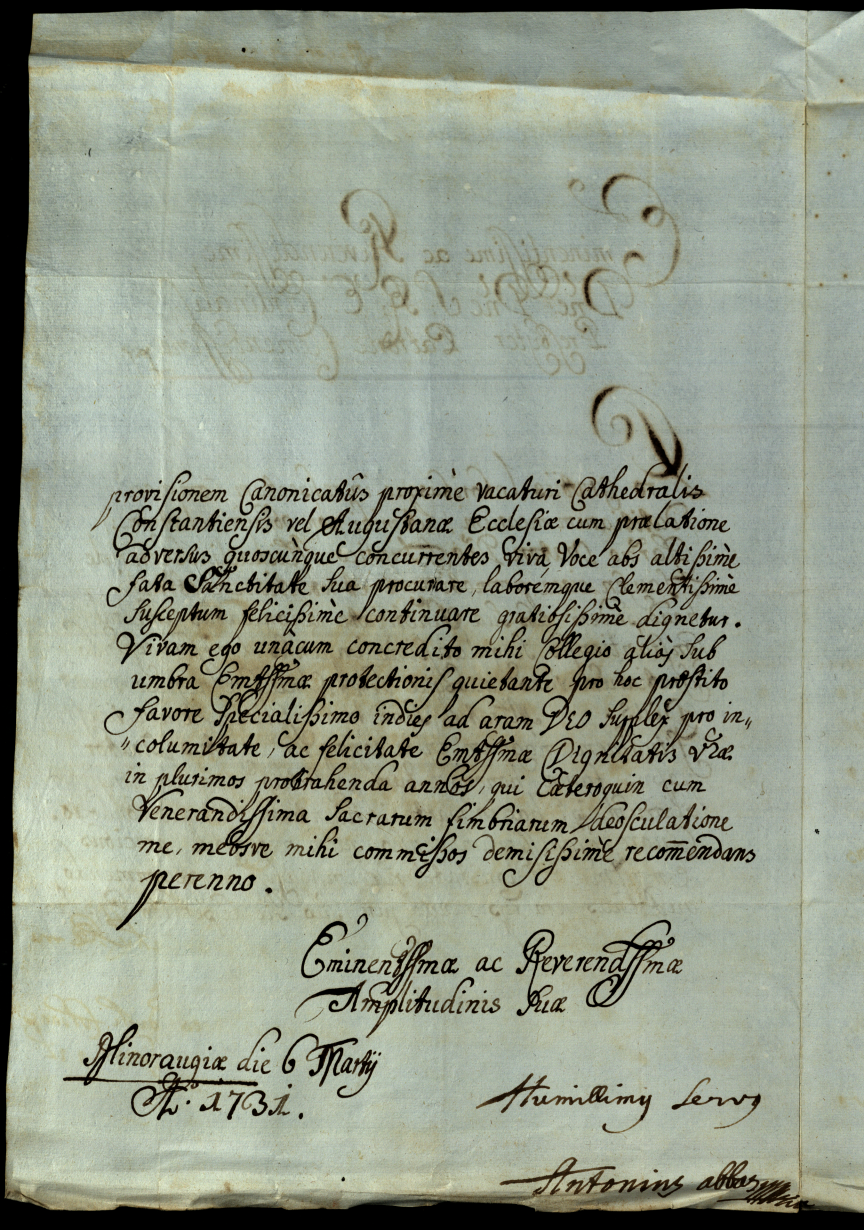 provisionem Canonicatûs proximè vacaturi Cathedralis
Constantiensis vel Augustanæ Ecclesiæ cum prælatione
adversus quoscunque concurrentes vivâ Voce abs altissimè
fata Sanctitate sua procurare, laboremque Clementissimè
susceptum felicissimè continuare gratiosissimè dignetur.
Vivam ego unàcum concredito mihi Collegio aliàs sub
umbra Emtssmæ protectionis quietante pro hoc præstito
favore specialissimo indies ad aram DEO supplex pro in„
„columitate, ac felicitate Emtssmæ Dignitatis Vræ
in plurimos protrahenda annos, qui Cæteroquin cum
Venerandissima Sacrarum fimbriarum deosculatione
me, meosve mihi commissos demississimè recom̄endans
perenno.
Eminentssmæ ac Reverendssmæ
Amplitudinis Suæ
Minoraugiæ die 6 Martij
Aº. 1731.
Humillimus Servus
Antonius abbas